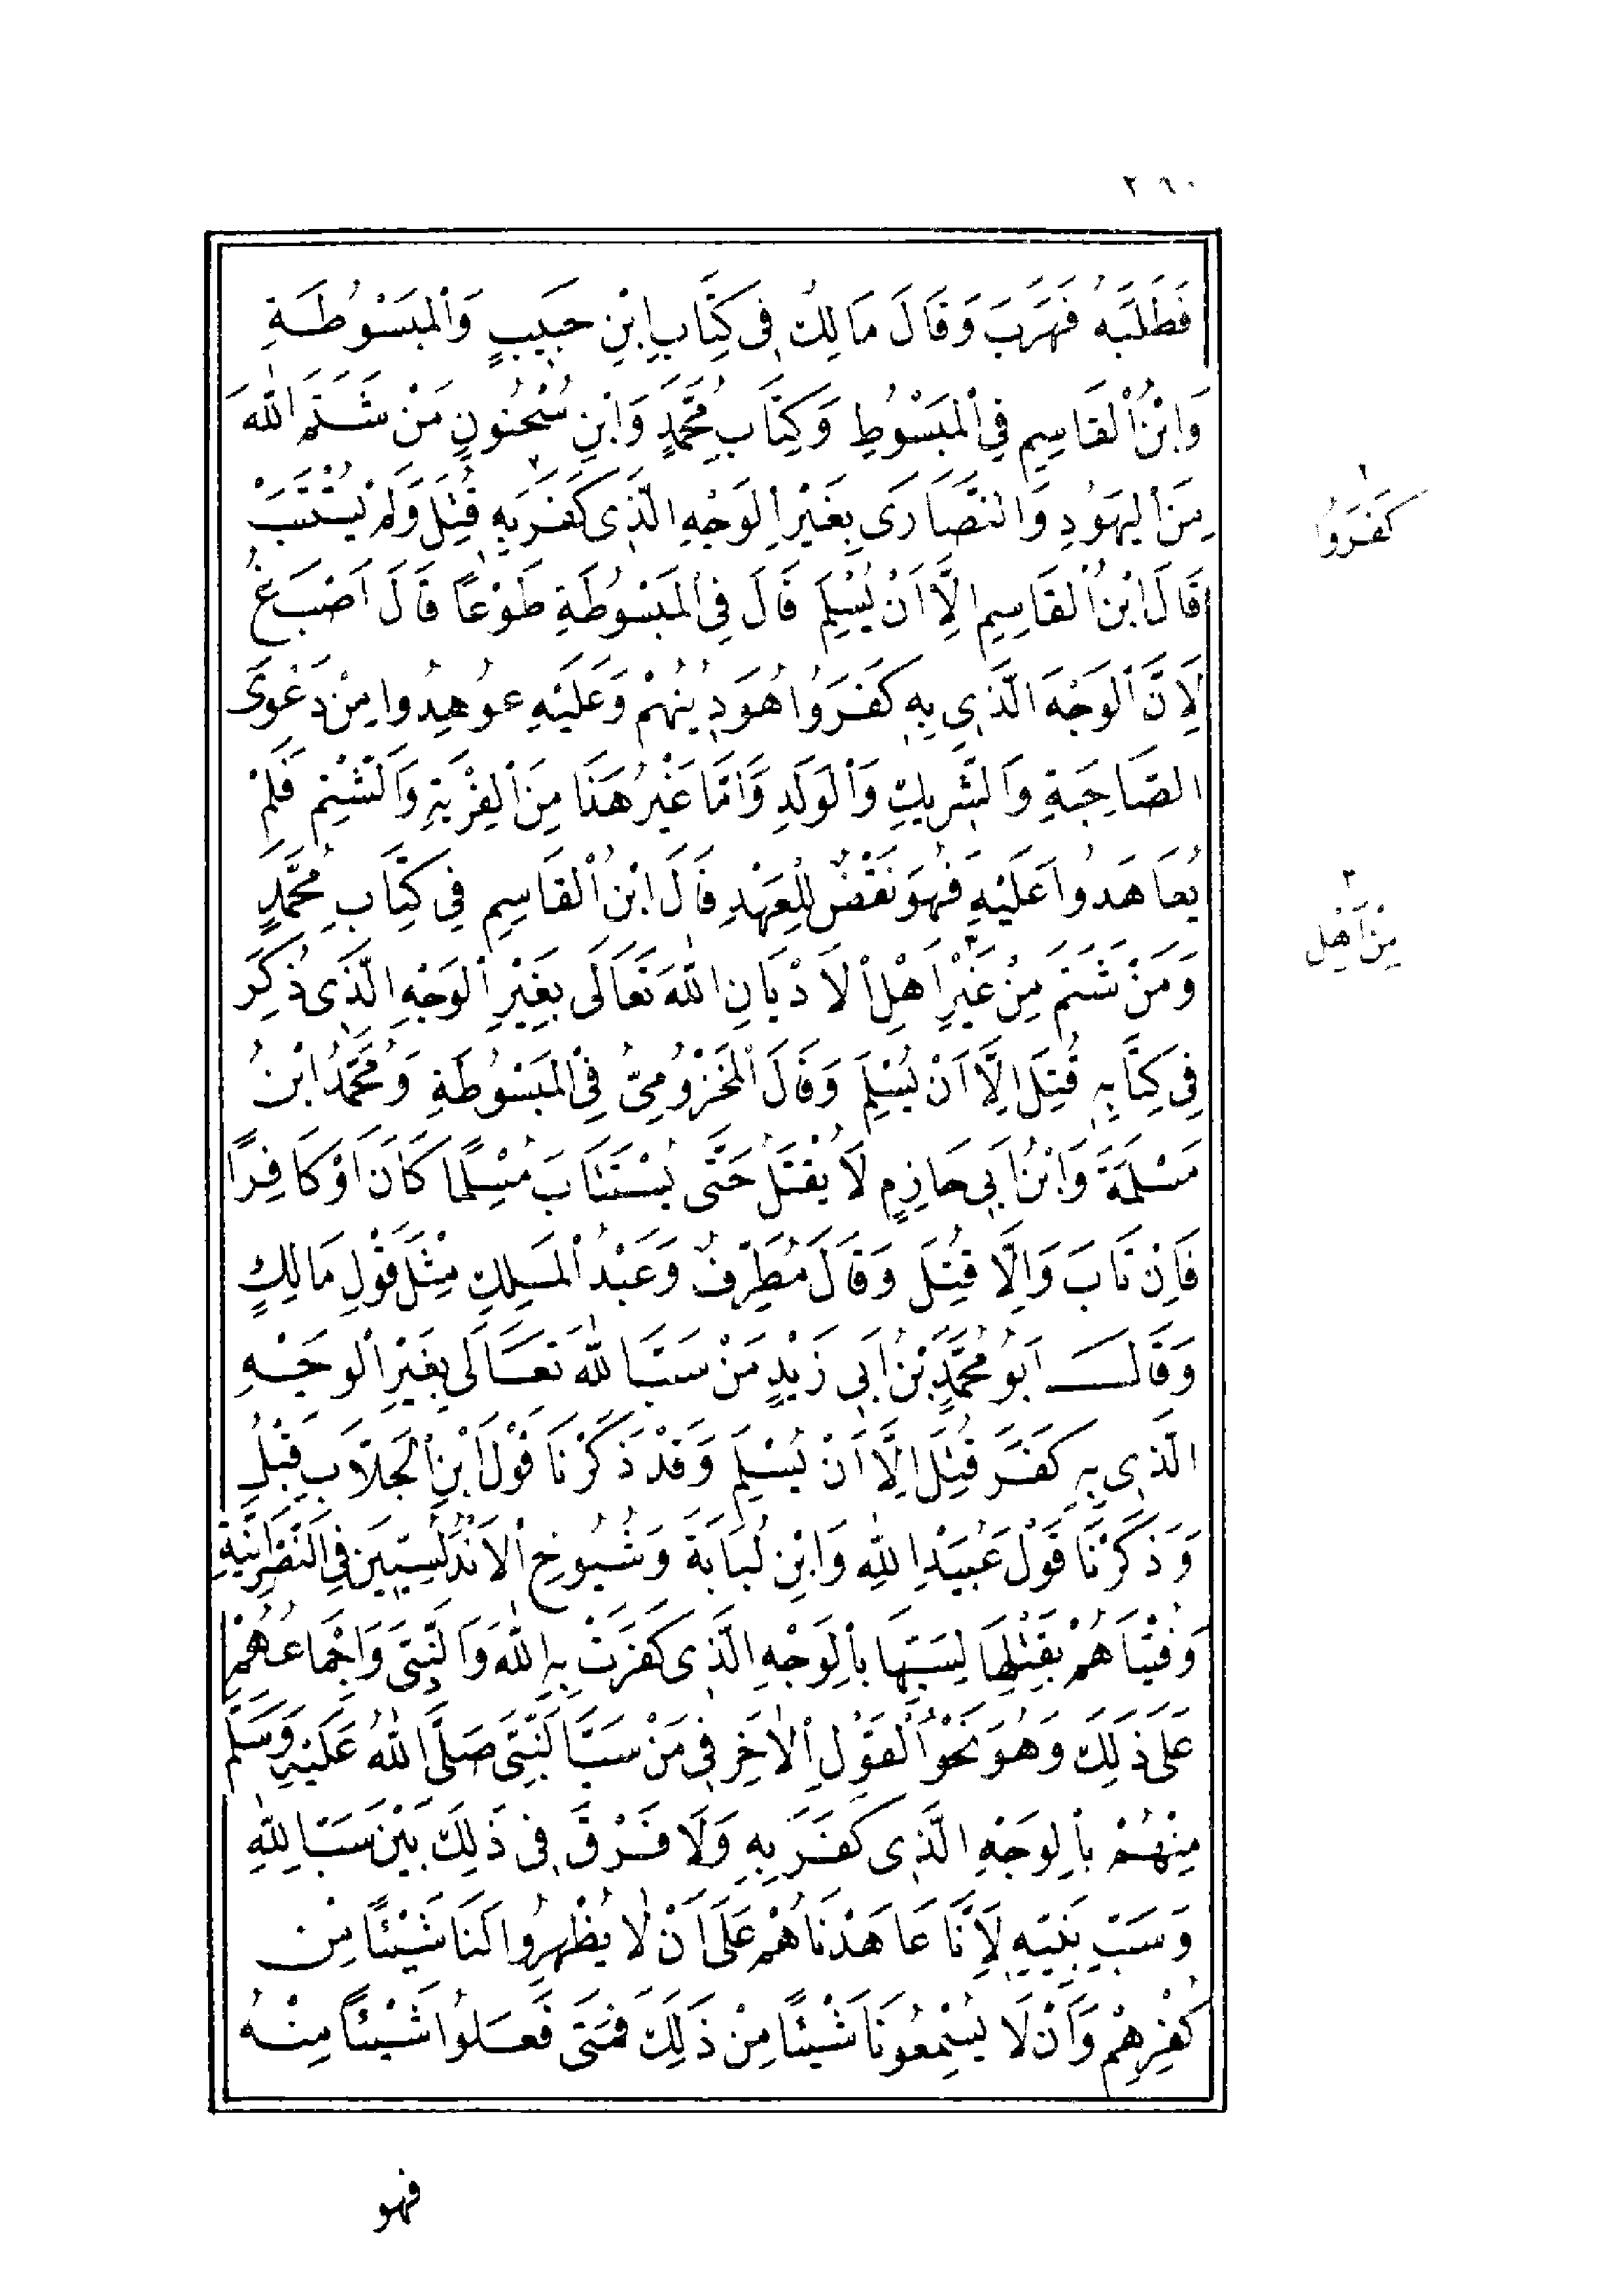 ٢٦٠
فَطَلَبَهُ فَهَرَبَ وَقَالَ مَالِكٌ فِى كِتَابِ ابْنِ حَبِيبٍ وَالْمَبْسُوطَةِ
وَابْنُ الْقَاسِمِ فِى الْمَبْسُوطِ وَكِتَابِ مُحَمَّدٍ وَابْنِ سُحْنُونٍ مَنْ شَتَمَ اللهَ
مِنَ الْيَهُودِ وَالنَّصَارَى بِغَيْرِ الْوَجْهِ الَّذِى كَفَرَ بِهِ قُتِلَ وَلَمْ يُسْتَتَبْ
قَالَ ابْنُ الْقَاسِمِ اِلَّا اَنْ يُسْلِمَ قَالَ فِى الْمَبْسُوطَةِ طَوْعًا قَالَ اَصْبَغُ
لِاَنَّ الْوَجْهَ الَّذِى بِهِ كَفَرُوا هُوَ دِينُهُمْ وَعَلَيْهِ عُوهِدُوا مِنْ دَعْوَى
الصَّاحِبَةِ وَالشَّرِيكِ وَالْوَلَدِ وَاَمَّا غَيْرُ هَذَا مِنَ الْفِرْيَةِ وَالشَّتْمِ فَلَمْ
يُعَاهَدُوا عَلَيْهِ فَهُوَ نَقْضٌ لِلْعَهْدِ قَالَ ابْنُ الْقَاسِمِ فِى كِتَابِ مُحَمَّدٍ
وَمَنْ شَتَمَ مِنْ غَيْرِ اَهْلِ الْاَدْيَانِ اللهَ تَعَالَى بِغَيْرِ الْوَجْهِ الَّذِى ذُكِرَ
فِى كِتَابِهِ قُتِلَ اِلَّا اَنْ يُسْلِمَ وَقَالَ الْمَخْزُومِىُّ فِى الْمَبْسُوطَةِ وَمُحَمَّدُ ابْنُ
مَسْلَمَةَ وَابْنُ اَبِى حَازِمٍ لَا يُقْتَلُ حَتَّى يُسْتَتَابَ مُسْلِمًا كَانَ اَوْ كَافِرًا
فَاِنْ تَابَ وَاِلَّا قُتِلَ وَقَالَ مُطَرِّفٌ وَعَبْدُ الْمَلِكِ مِثْلَ قَوْلِ مَالِكٍ
وَقَالَ اَبُو مُحَمَّدِ بْنُ اَبِى زَيْدٍ مَنْ سَبَّ اللهَ تَعَالَى بِغَيْرِ الْوَجْهِ
الَّذِى بِهِ كَفَرَ قُتِلَ اِلَّا اَنْ يُسْلِمَ وَقَدْ ذَكَرْنَا قَوْلَ ابْنِ الْجَلَّابِ قَبْلُ
وَذَكَرْنَا قَوْلَ عُبَيْدِ اللهِ وَابْنِ لُبَابَةَ وَشُيُوخِ الْاَنْدَلُسِيِّينَ فِى النَّصْرَانِيَّةِ
وَفُتْيَاهُمْ بِقَتْلِهَا لِسَبِّهَا بِالْوَجْهِ الَّذِى كَفَرَتْ بِهِ اللهَ وَالنَّبِىَّ وَاِجْمَاعُهُمْ
عَلَى ذَلِكَ وَهُوَ نَحْوُ الْقَوْلِ الْاٰخَرِ فِى مَنْ سَبَّ النَّبِىَّ صَلَّى اللهُ عَلَيْهِ وَسَلَّمَ
مِنْهُمْ بِالْوَجْهِ الَّذِى كَفَرَ بِهِ وَلَا فَرْقَ فِى ذَلِكَ بَيْنَ سَبِّ اللهِ
وَسَبِّ نَبِيِّهِ لِاَنَّا عَاهَدْنَاهُمْ عَلَى اَنْ لَا يُظْهِرُوا لَنَا شَيْئًا مِنْ
كُفْرِهِمْ وَاَنْ لَا يُسْمِعُونَا شَيْئًا مِنْ ذَلِكَ فَمَتَى فَعَلُوا شَيْئًا مِنْهُ
فهو
١
كَفَرُوا
٢
مِنْ اَهْلِ